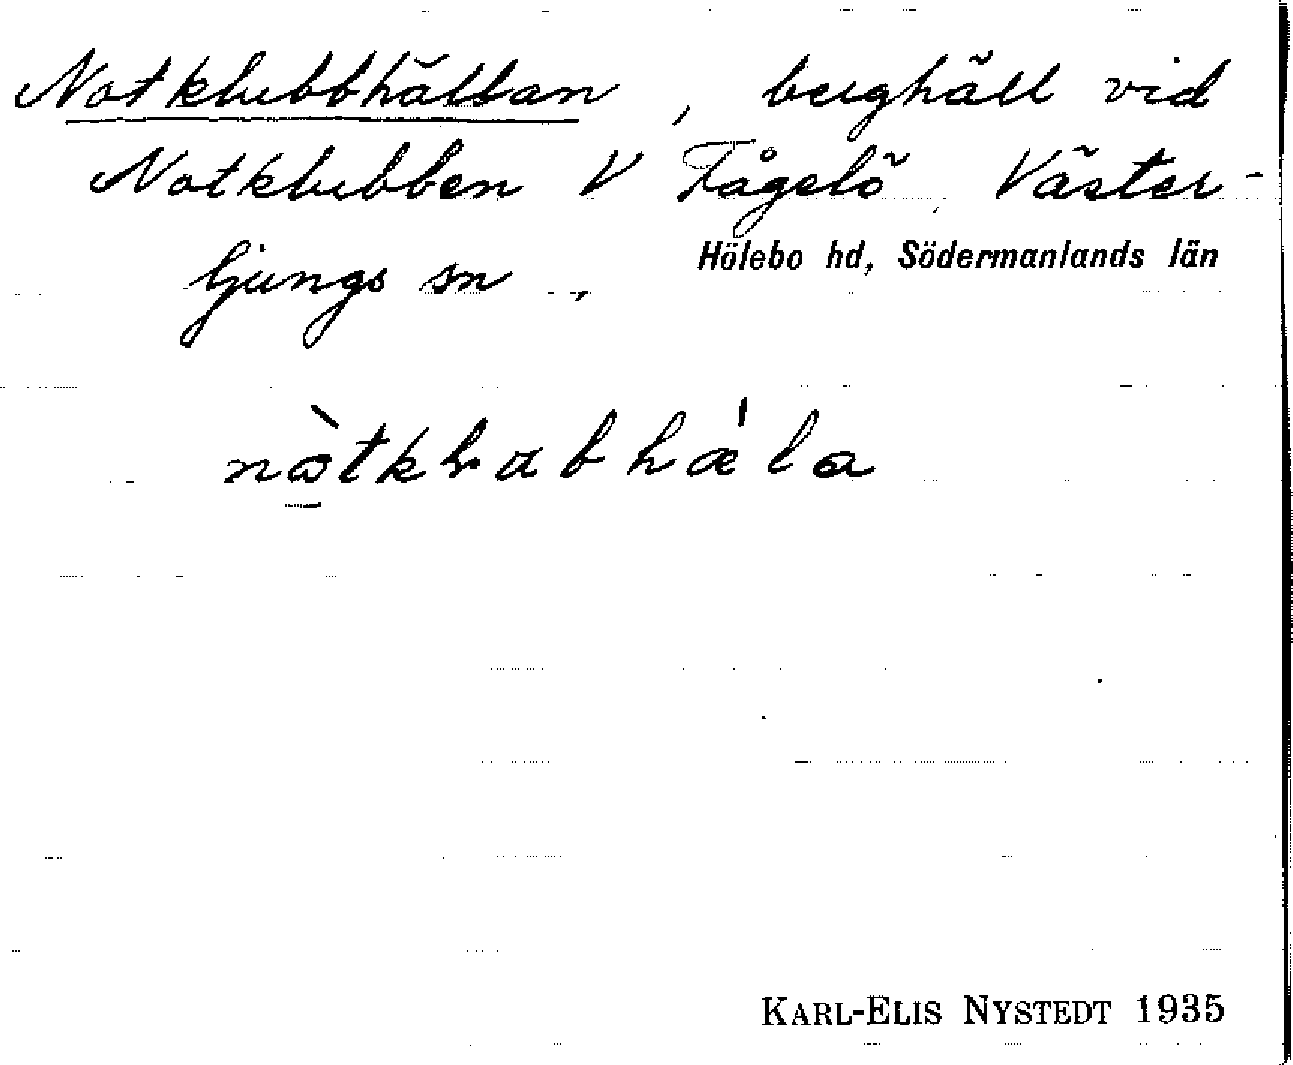 Notklubbhällan, berghäll vid
Notklubben V Fågelö, Väster-
ljungs sn, Hölebo hd, Södermanlands län
KARL-ELIS NYSTEDT 1935